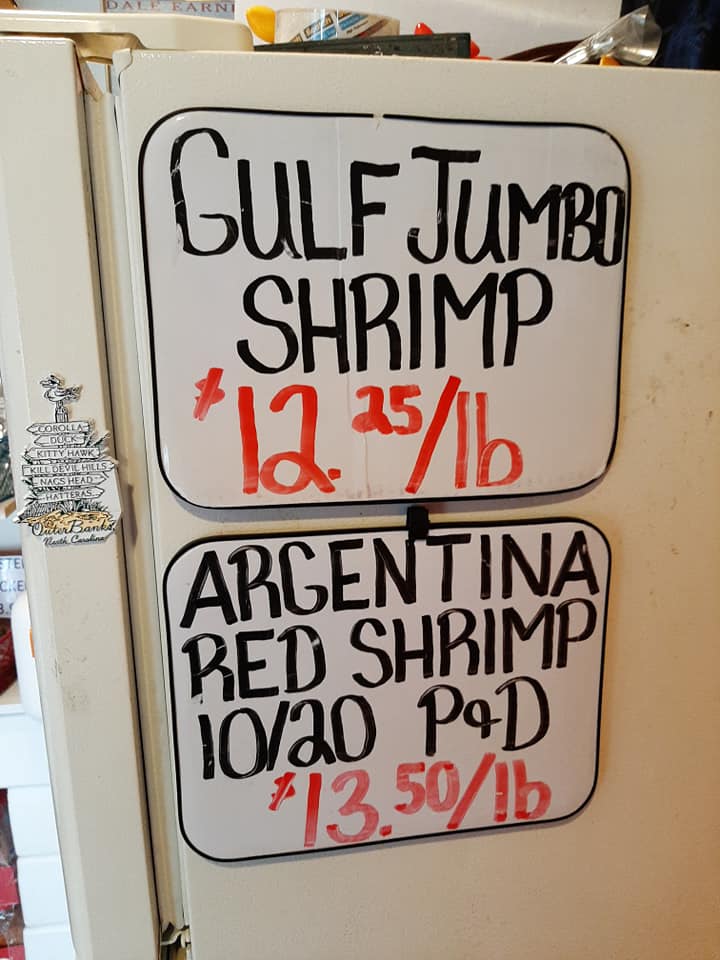 DALE EARN
GULF JUMBO
SHRIMP
$12.25/lb
COROLLA
DUCK
KITTY HAWK
KILL DEVIL HILLS
NAGS HEAD
HATTERAS
Outer Banks
North Carolina
ARGENTINA
RED SHRIMP
10/20 P&D
$13.50/lb